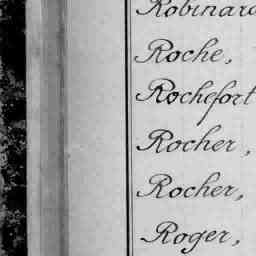 Robinard
Roche,
Rochefort
Rocher,
Rocher,
Roger,